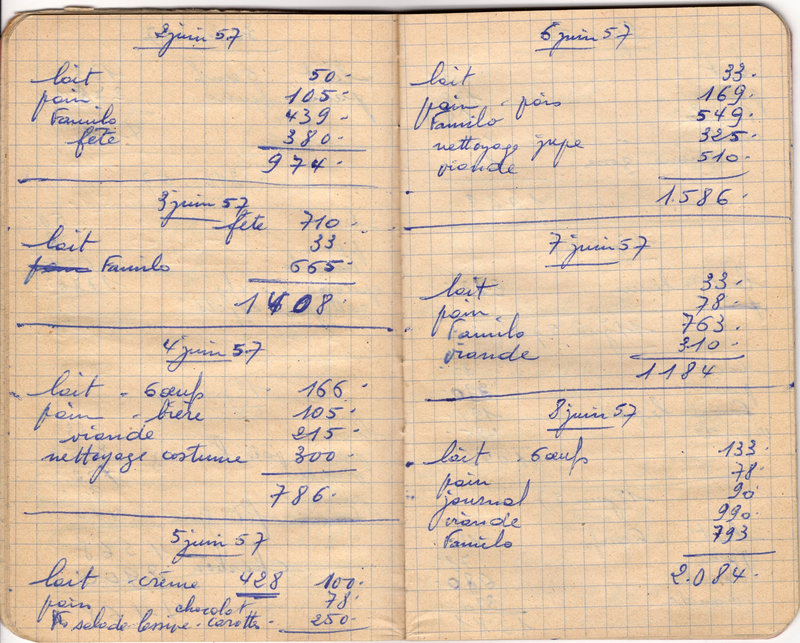 2 juin 57
lait 50.
pain 105.
Famile 439.
fête 380.
974.
3 juin 57
fête 710.
lait 33.
Famile 665.
1408.
4 juin 57
lait - 6 œufs 166.
pain - bière 105.
viande 215.
nettoyage costume 300.
786.
5 juin 57
lait - crème 428 100.
pain 78.
chocolat
salade lessive - carottes 250.
6 juin 57
lait 33.
pain - pois 169.
Familo 549.
nettoyage jupe 325.
viande 510.
1.586.
7 juin 57
lait 33.
pain 78.
Familo 763.
viande 310.
1184.
8 juin 57
lait - 6 œufs 133.
pain 78.
journal 90.
viande 990.
Familo 793
2.084.